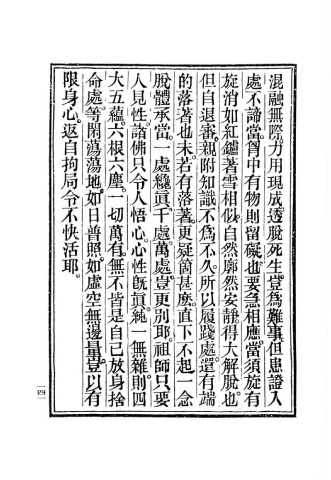 混融無際。力用現成。透脫死生。豈爲難事。但患證入
處。不諦當。胷中有物。則留礙也。要急相應。當須旋有
旋消。如紅鑪著雪相似。自然廓然安靜。得大解脫也。
但自退審。親附知識。不爲不久。所以履踐處。還有端
的落著也未。若有落著。更疑箇甚麽。直下不起一念。
脫體承當。一處纔眞。千處萬處。豈更別耶。祖師只要
人見性。諸佛只令人悟心。心性旣眞。純一無雜。則四
大五蘊。六根六塵。一切萬有。無不皆是自己放身捨
命處。等閑蕩蕩地。如日普照。如虛空無邊量。豈以有
限身心。返自拘局。令不快活耶。
一四